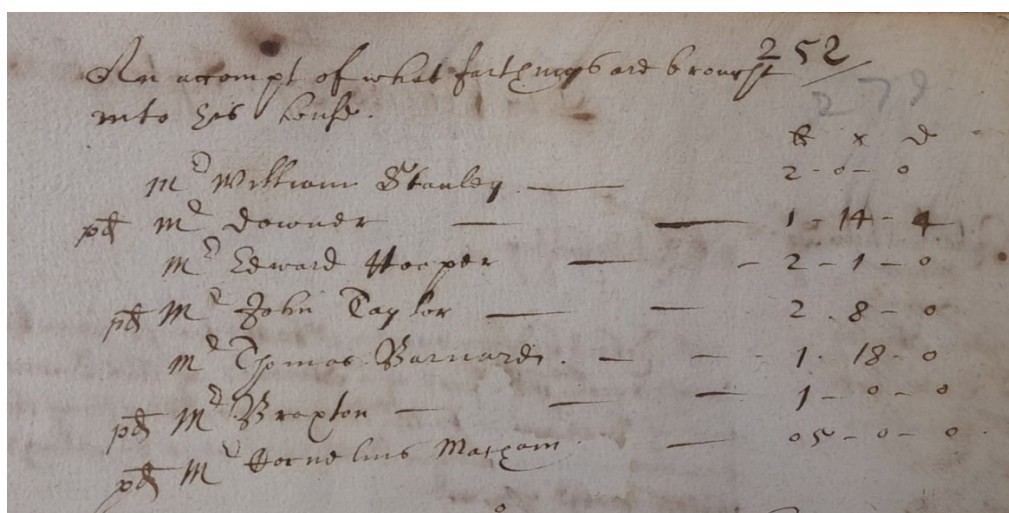 An accompt of what farthings are brought 252
into his house. 279
li s d
Mr William Stanley — 2 - 0 - 0
pd Mr Downer — — 1 - 14 - 4
Mr Edward Hooper — - 2 - 1 - 0
pd Mr John Taylor — — 2 . 8 - 0
Mr Thomas Barnard . — — - 1 . 18 - 0
pd Mr Braxton — — — 1 - 0 - 0
pd Mr Cornelius — 05 - 0 - 0